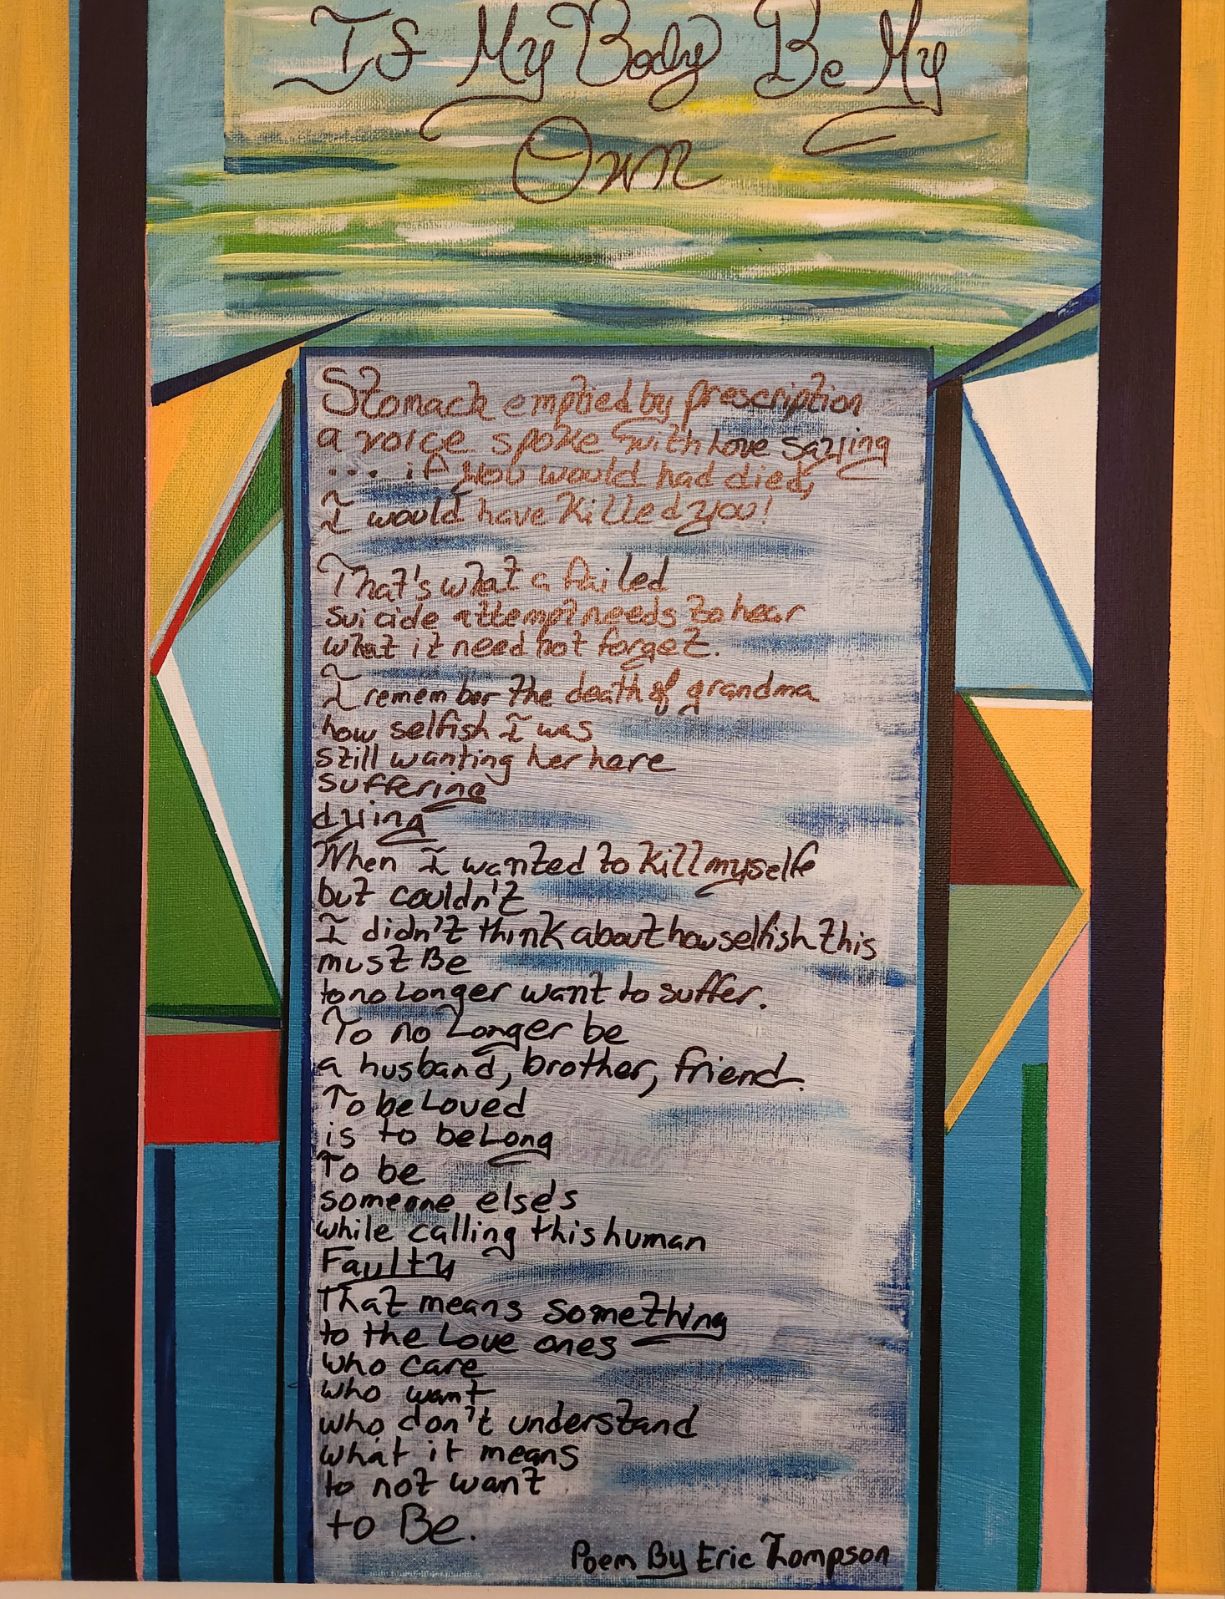 If My Body Be My
Own
Stomach emptied by prescription
a voice spoke with Love saying
... if you would had died,
I would have killed you!
That's what a failed
suicide attempt needs to hear
what it need not forget.
I remember the death of grandma
how selfish I was
still wanting her here
suffering
dying
When I wanted to kill myselfe
but couldn't
I didn't think about how selfish this
must Be
to no Longer want to suffer.
To no Longer be
a husband, brother, friend.
To be Loved
is to beLong
To be
someone else's
while calling this human
Faulty
That means something
to the Love ones
who care
who want
who don't understand
what it means
to not want
to Be.
Poem By Eric Thompson